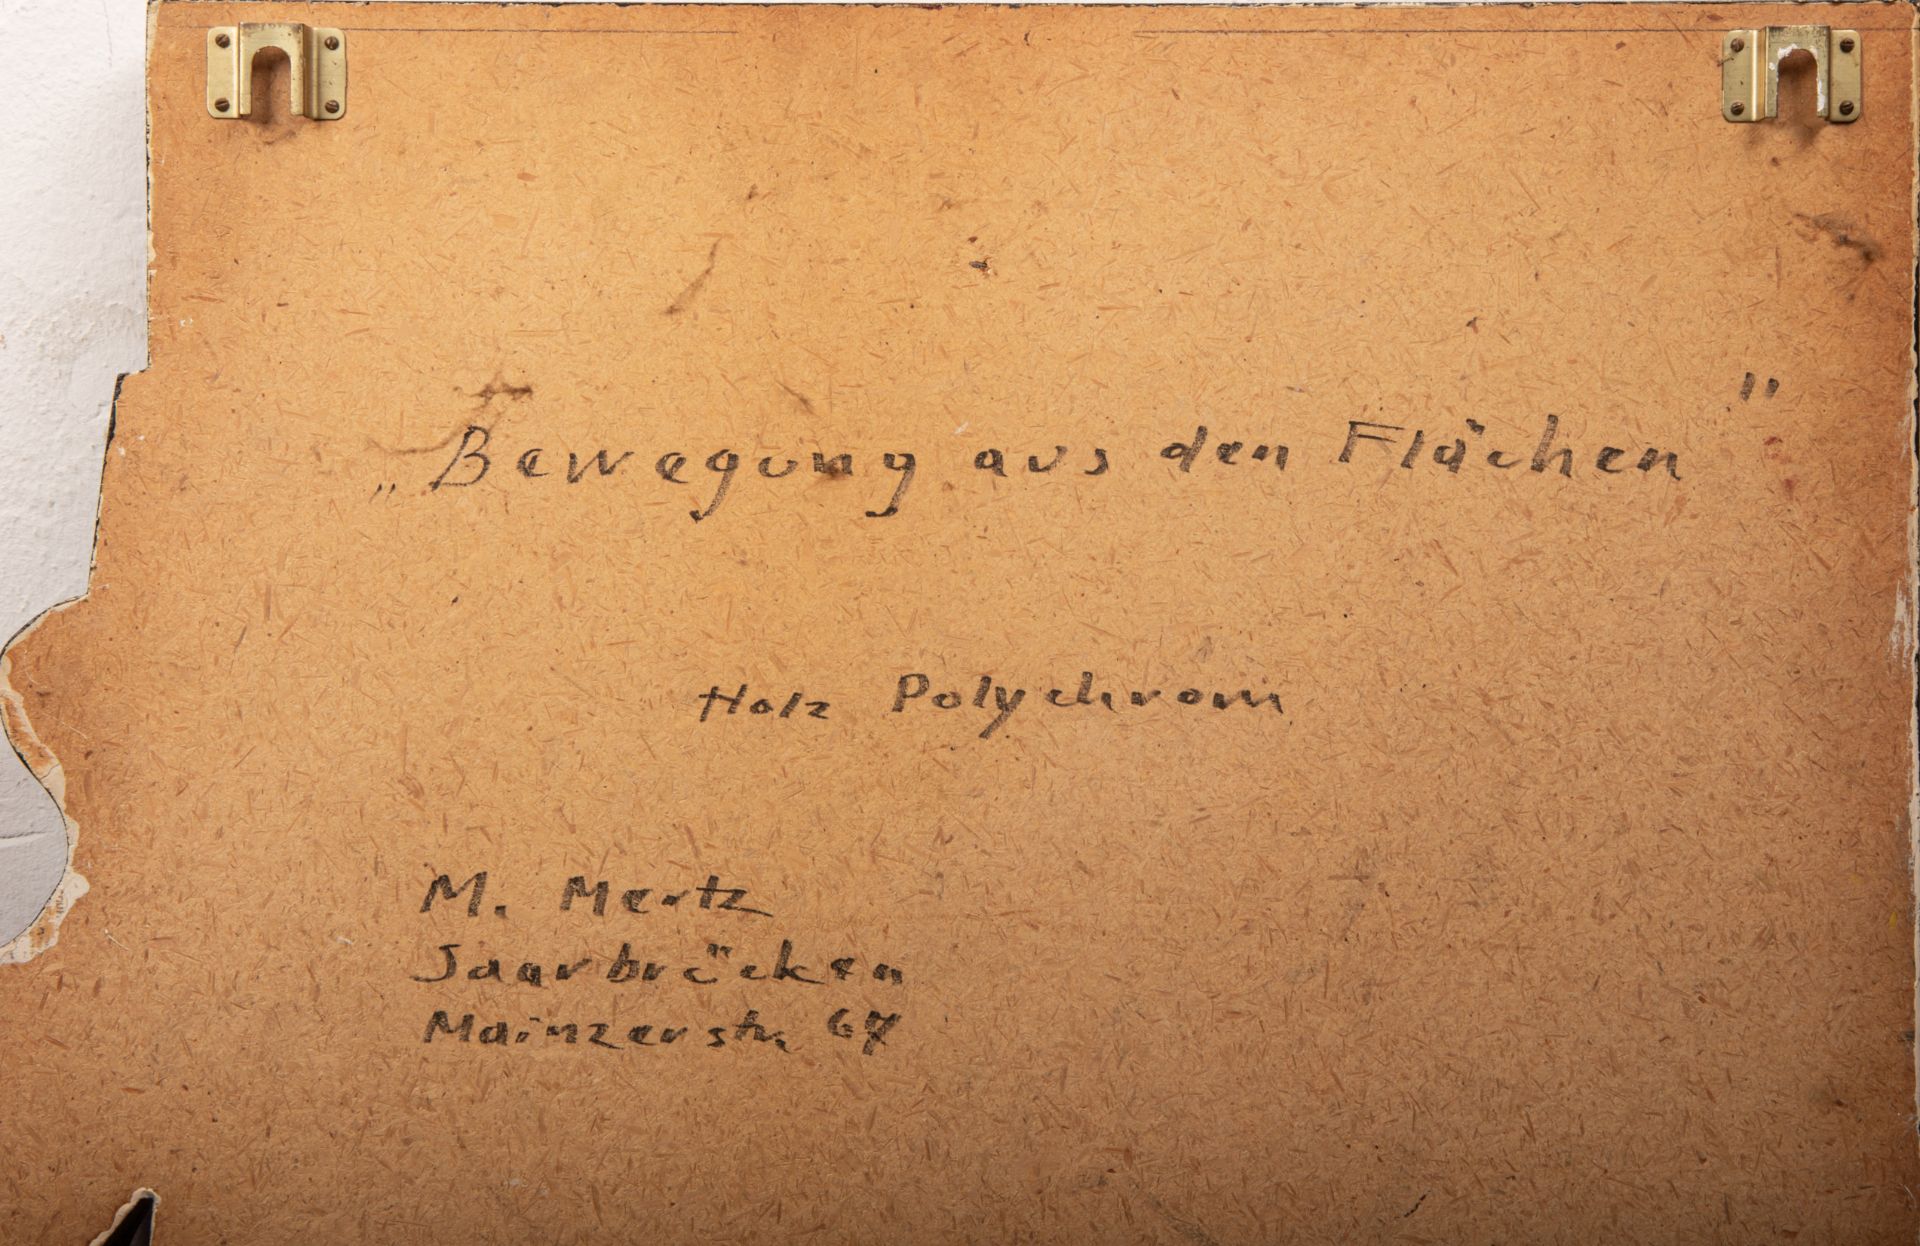 „Bewegung aus den Flächen"
Holz Polychrom
M. Mertz
Saarbrücken
Mainzerstr. 67